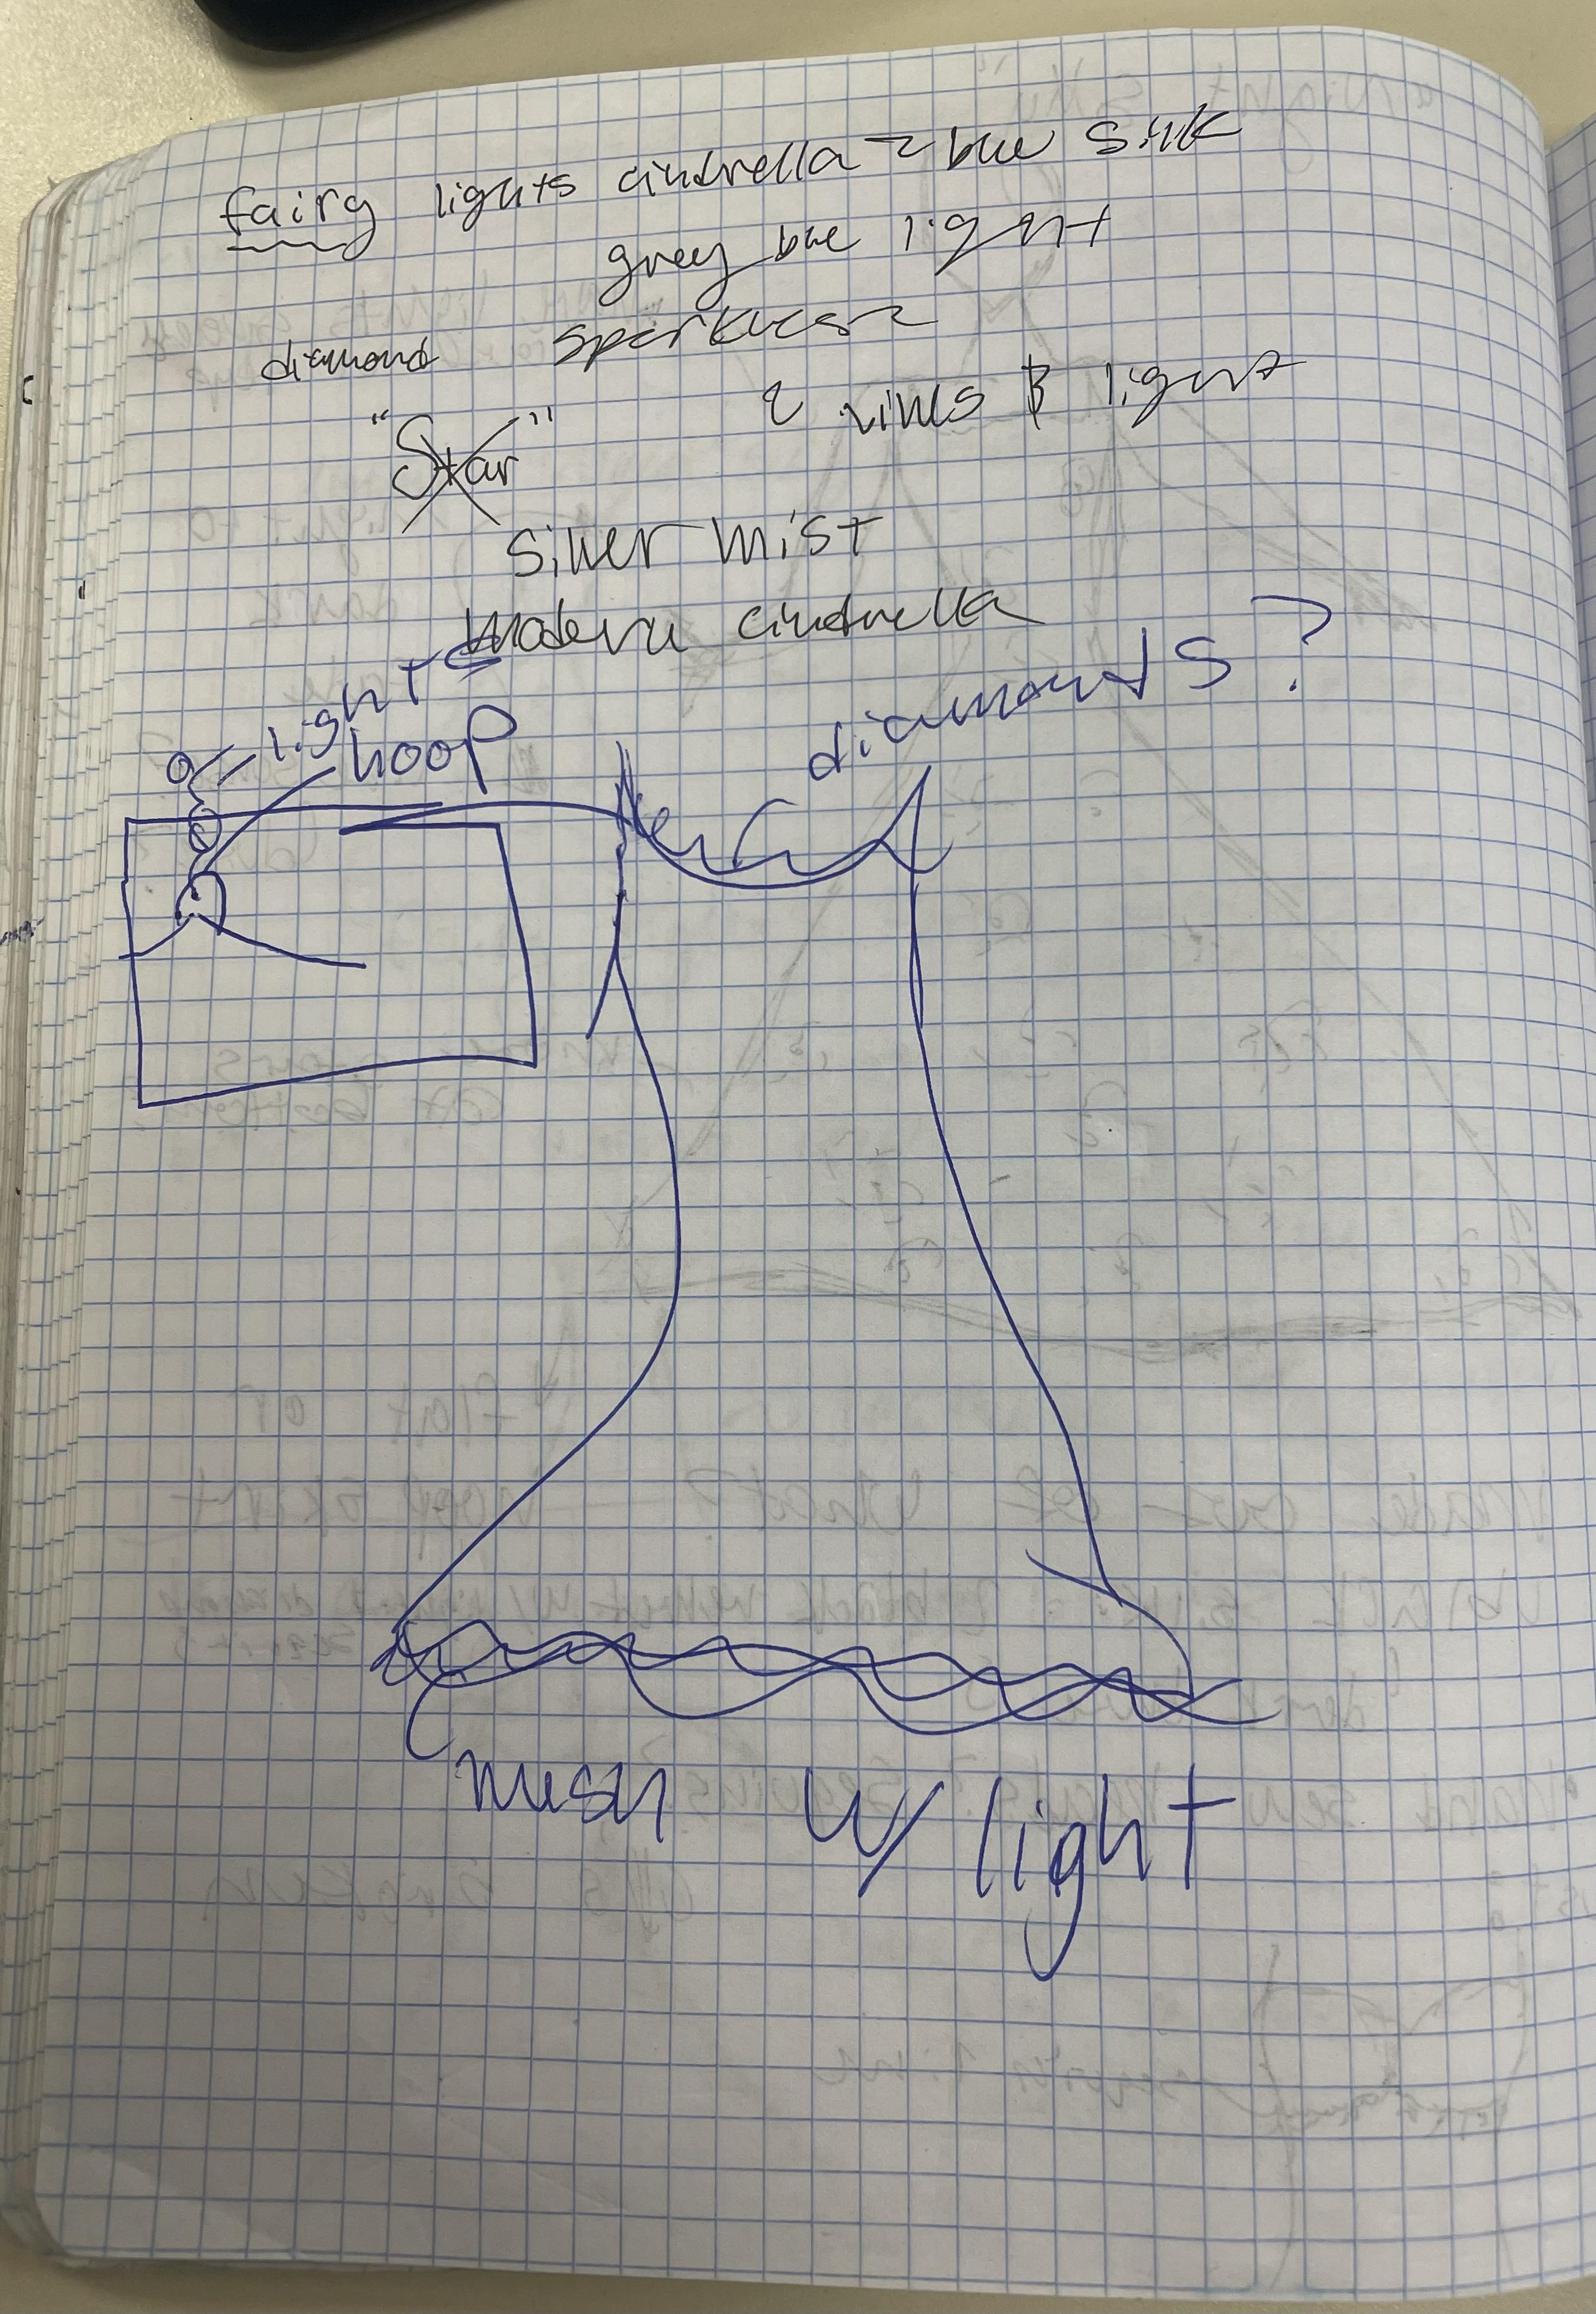 fairy lights cindrella - blue silk
grey blue light
diamond sparkles
"Star"
light
silver mist
Modern cindrella
lights
hoop
diamonds?
mesh w/ light